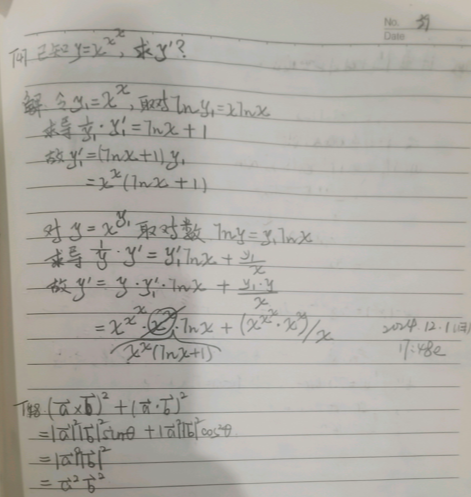 No.
Date
问 已知y=x^{x^x}, 求y'?
解 令y₁=x^x, 取对lny₁=xlnx
求导 1/y₁·y₁'=lnx+1
故y₁'=(lnx+1)y₁
=x^x(lnx+1)
对y=x^{y₁}取对数 lny=y₁lnx
求导 1/y·y'=y₁'lnx+y₁/x
故y'=y·y₁'·lnx+y₁·y/x
=x^{x^x}·(x^x)'·lnx+(x^{x^x}·x^x)/x
x^x(lnx+1)
2024.12.1(日)
(a⃗×b⃗)²+(a⃗·b⃗)²
=|a⃗|²|b⃗|²sin²θ+|a⃗|²|b⃗|²cos²θ
=|a⃗|²|b⃗|²
=a⃗²b⃗²